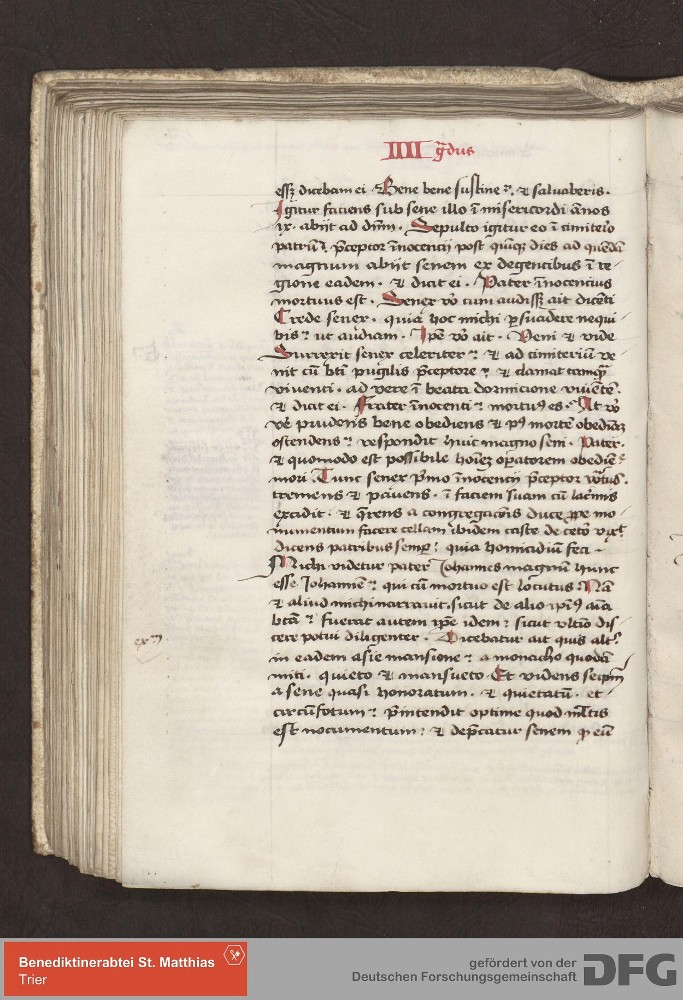 IIII gͬdus
essꝫ dicebam ei · Bene bene sustine · et saluaberis ·
Igitur faciens sub sene illo ī misericordi ānos
ix · abijt ad dnm̄ · Sepulto igitur eo ī cimiterio
patrū p̄ceptor īnocencij post quīqꝫ dies ad quēdā
magnum abijt senem ex degentibus ī re
gione eadem · et dicit ei · Pater īnocencius
mortuus est · Senex vō cum audissꝫ ait dicēti
Crede senex · quia hoc michi psuadere nequi
bis ut audiam · Ipe vō ait · Veni et vide
Surrexit senex celeriter et ad cimiteriū ve
nit cū bti pugilis p̄ceptore et clamat tamqͣ
viuenti · ad vere ī beata dormicione viuētē ·
et dicit ei · Frater īnocenti mortuꝰ es · At vō
vē prudens bene obediens et pꝰ mortē obediēciā
ostendens respondit huic magno seni · Pater ·
et quomodo est possibile hoīeꝫ opatorem obediē
mori · Tunc senex pͥmo īnocencij p̄ceptor
tremens et pauens · ī faciem suam cū lacͥmis
excidit · et q̄rens a congregacōnis duce ꝓpe mo
numentum facere cellam ibidem caste de ceto vixit
dicens patribus semp quia homicidiū feci ·
Michi videtur pater Iohannes magnū hunc
esse Iohannē qui cū mortuo est locutus Nā
et aliud michi narrauit sicut de alio
btā fuerat autem ipe idem sicut vltīo dis
cere potui diligenter · Dicebatur ait quis altͥ
in eadem asie mansione a monacho quodā
miti · quieto et mansueto · Et videns seipm
a sene quasi honoratum · et quietatū · et
circūfotum p̄mtendit optime quod ml̄tis
est nocumentum et dep̄catur senem ꝙ eū
Benediktinerabtei St. Matthias
Trier
gefördert von der
Deutschen Forschungsgemeinschaft DFG